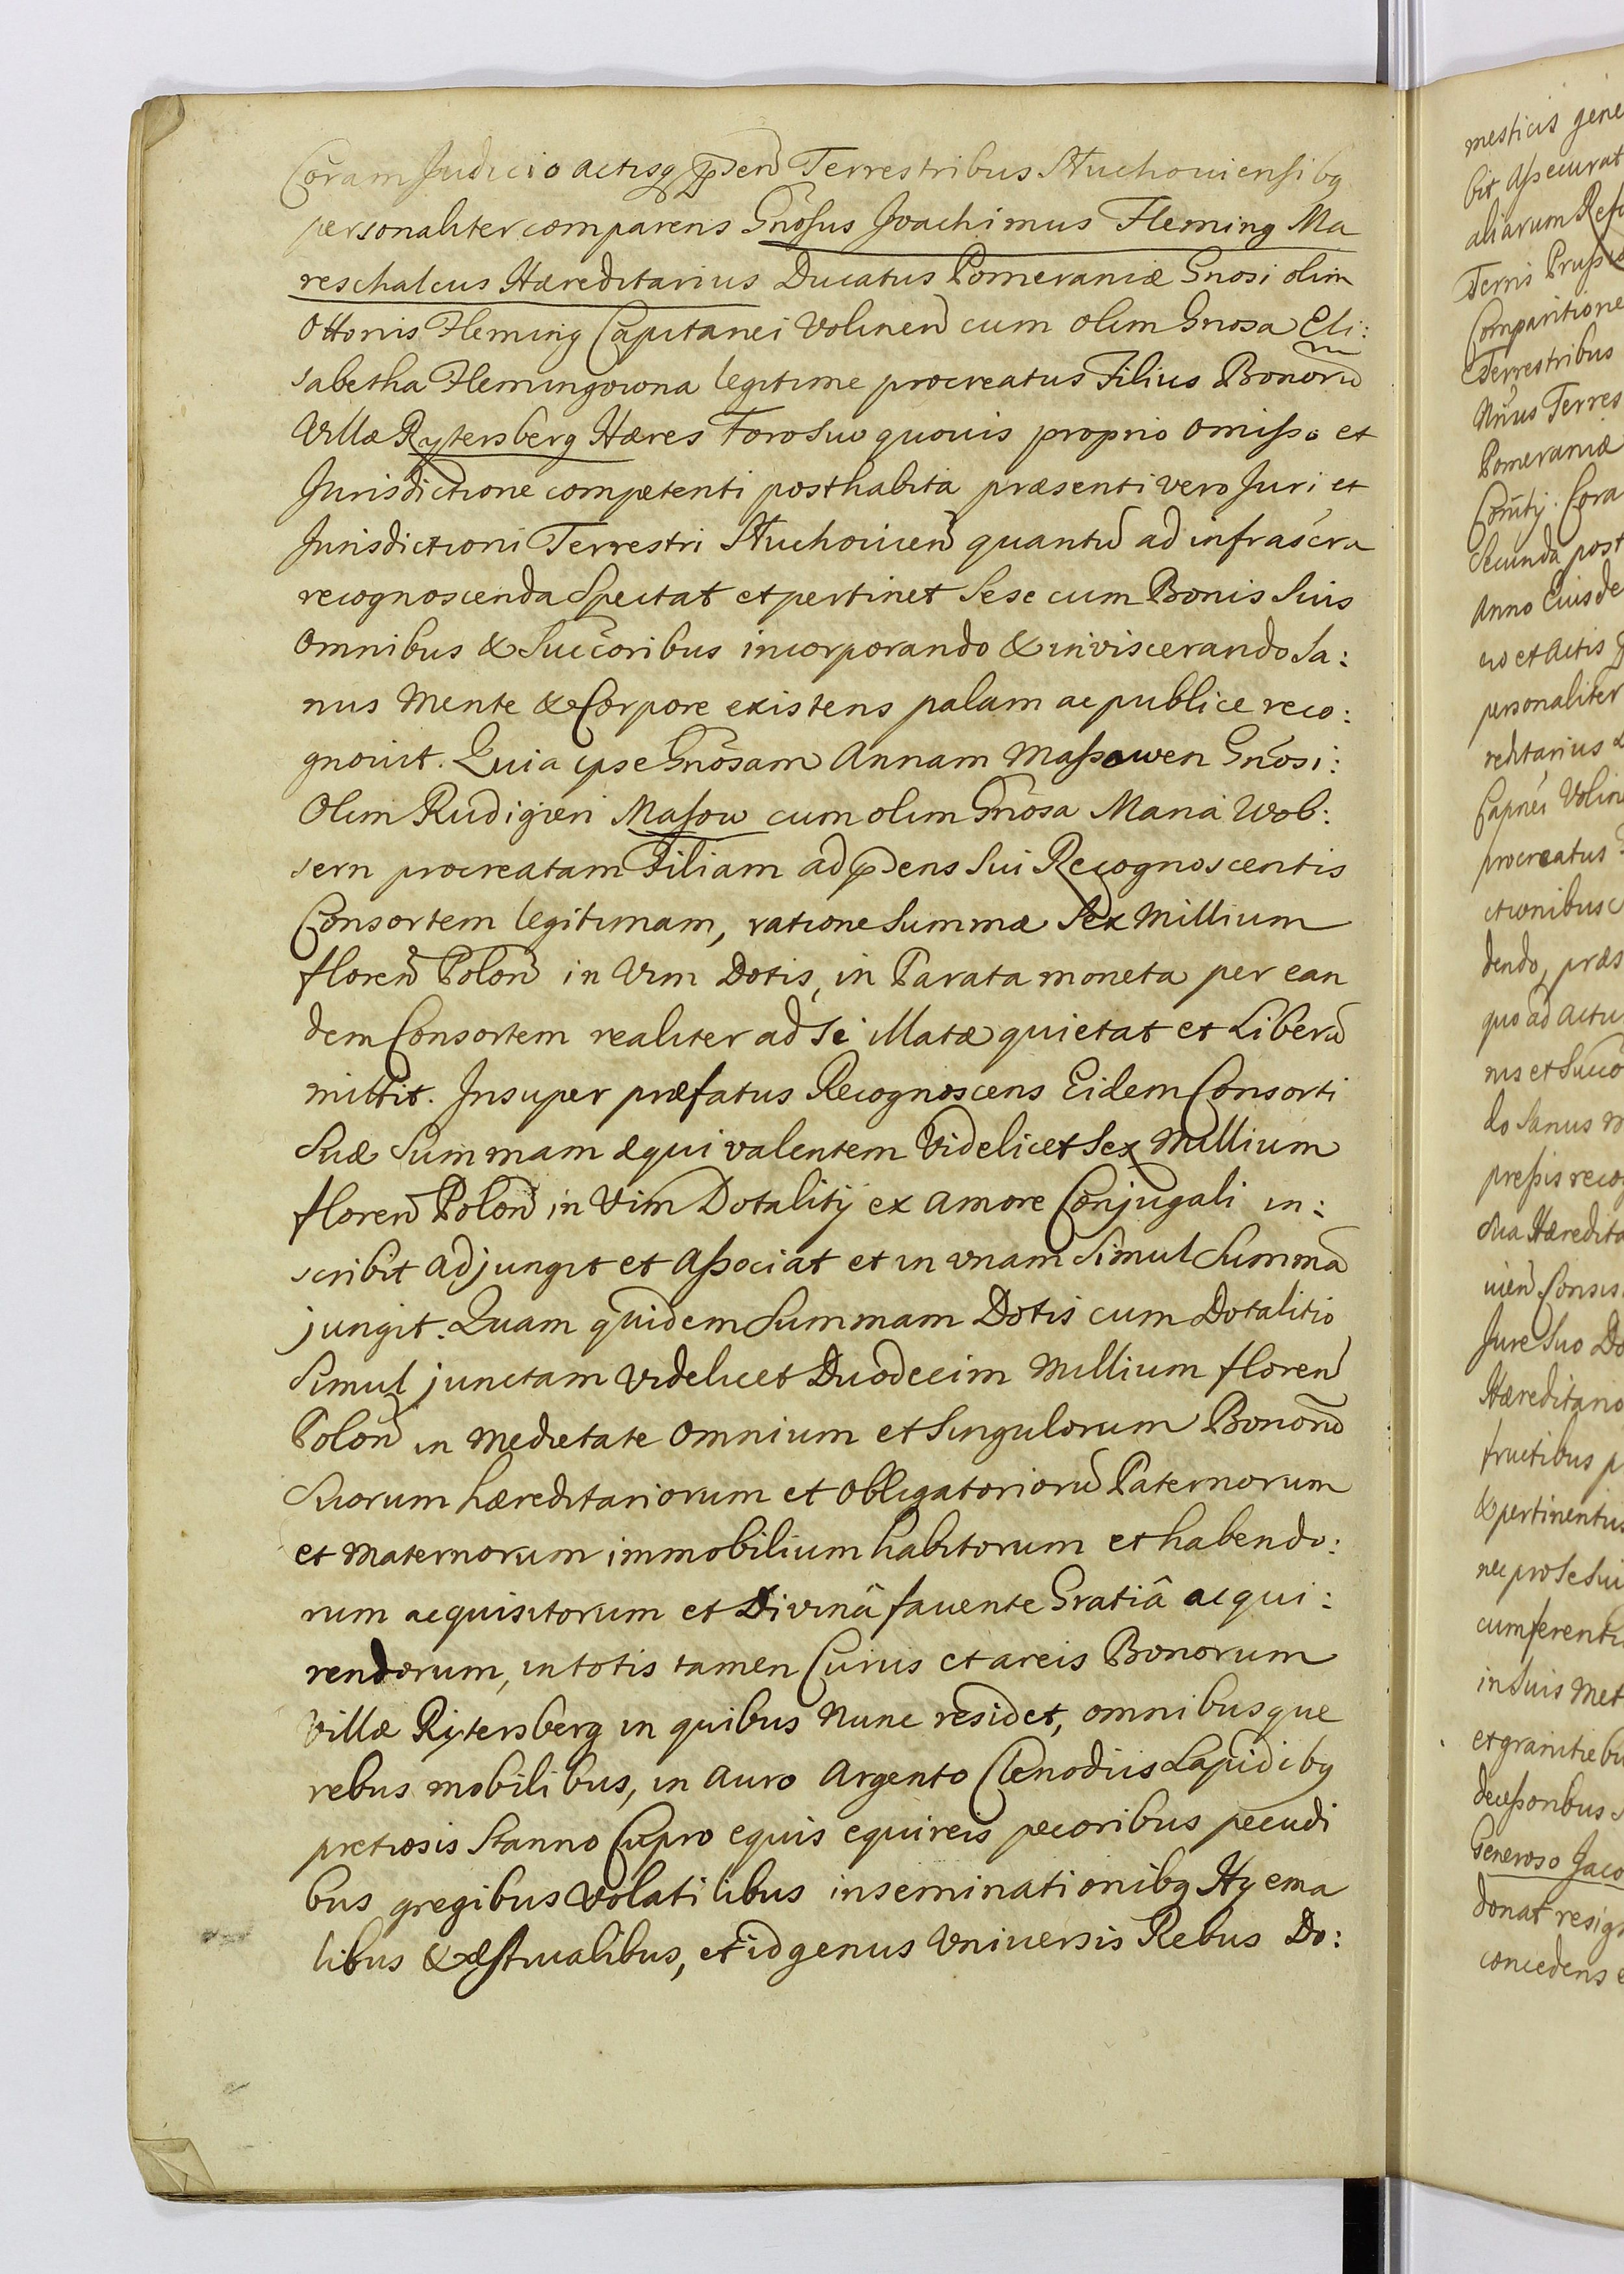 Coram Judicio actisq pnsen͠ Terrestribus Stuchouiensibq
personaliter comparens Gnosus Joachimus Fleming Ma
reschalcus Hæreditarius Ducatus Pomeraniæ Gnosi olim
Ottonis Fleming Capitanei Volinen͠ cum olim Gnosa Eli:
sabetha Flemingowna legitime procreatus Filius Bonorũ
Villæ Rytersberg Hæres Foro suo quouis proprio omisso et
Jurisdictione competenti posthabita præsenti vero Juri et
Jurisdictioni Terrestri Stuchouien͠ quantũ ad infrascra
recognoscenda Spectat et pertinet Sese cum Bonis Suis
Omnibus & Succoribus incorporando & inviscerando Sa:
nus Mente & Corpore existens palam ac publice reco:
gnouit. Quia ipse Gnosam Annam Massowen Gnosi:
Olim Rudigieri Masow cum olim Gnosa Maria Wob:
sern procreatam Filiam ad pnsens Sui Recognoscentis
Consortem legitimam, ratione Summæ Sex Millium
floren͠ Polon͠ in Vim Dotis, in Parata moneta per ean
dem Consortem realiter ad Se illatæ quietat et Liberũ
mittit. Insuper præfatus Recognoscens Eidem Consorti
Suæ Summam æquivalentem Videlicet Sex Millium
floren͠ Polon͠ in Vim Dotalitij ex amore Conjugali in:
scribit adjungit et Associat et in unam Simul Summã
jungit. Quam quidem Summam Dotis cum Dotalitio
Simul junctam videlicet Duodecim Millium floren͠
Polon͠ in Medietate Omnium et Singulorum Bonorũ
Suorum hæreditariorum et obligatoriorũ Paternorum
et Maternorum immobilium habitorum et habendo:
rum acquisitorum et Divinâ fauente Gratiâ acqui:
rendorum, in totis tamen Curiis et areis Bonorum
Villæ Rytersberg in quibus Nunc residet, omnibusque
rebus mobilibus, in Auro Argento Clenodiis Lapidibq
pretiosis Stanno Cupro equis equireis pecoribus pecudi
bus gregibus Volatilibus inseminationibq Hyema
libus & æstiualibus, et id genus Vniuersis Rebus Do:
mesticis gene
bit Assecurat
aliarum Refo
Terris Prussiæ
Comparitione
Terrestribus
Terres
Pomeraniæ
Cora
Secunda post
Anno Eiusde
cio et Actis
personaliter
reditarius &
Capnei Volin
procreatus
ctionibus
dendo, præs
quo ad actu
nis et Succo
do Sanus
pressis reco
Sua Heredita
uien͠ Consis
Jure Suo Do
Hæreditario
fructibus p
& pertinentiis
nec pro Se Sui
cumferenti
in Suis Met
et graniciebu
decessoribus S
Generoso Jaco
donat resig
concedens e